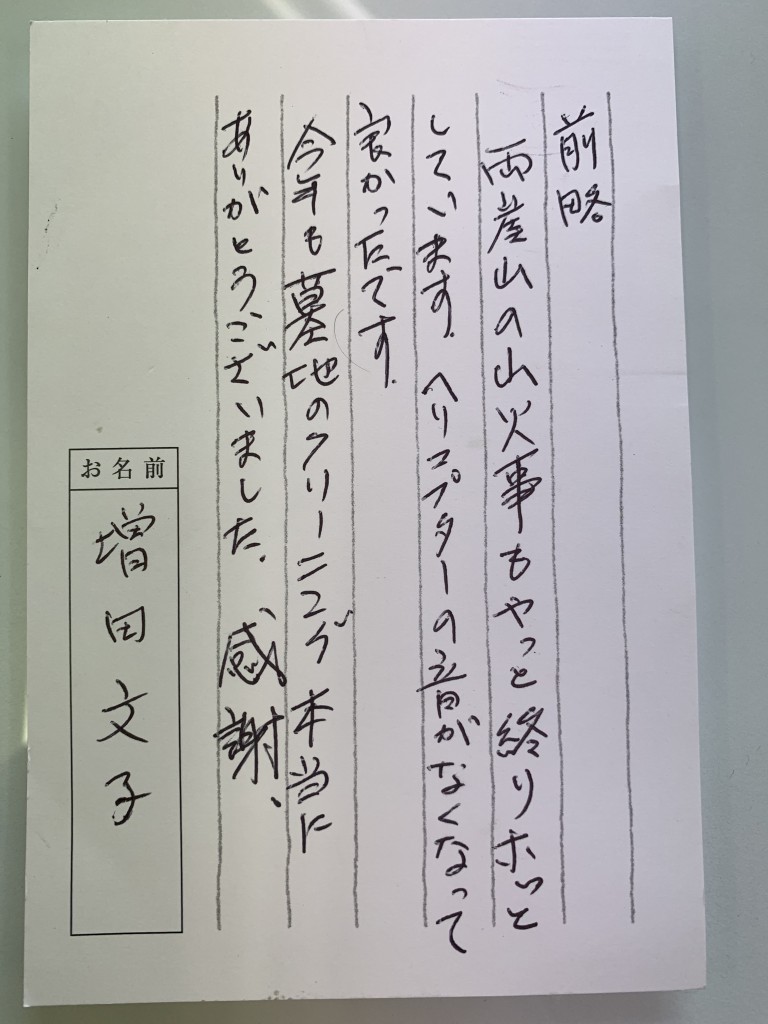 前略
両崖山の山火事もやっと終りホッと
しています。ヘリコプターの音がなくなって
良かったです。
今年も墓地のクリーニング本当に
ありがとうございました。感謝、
お名前
増田文子